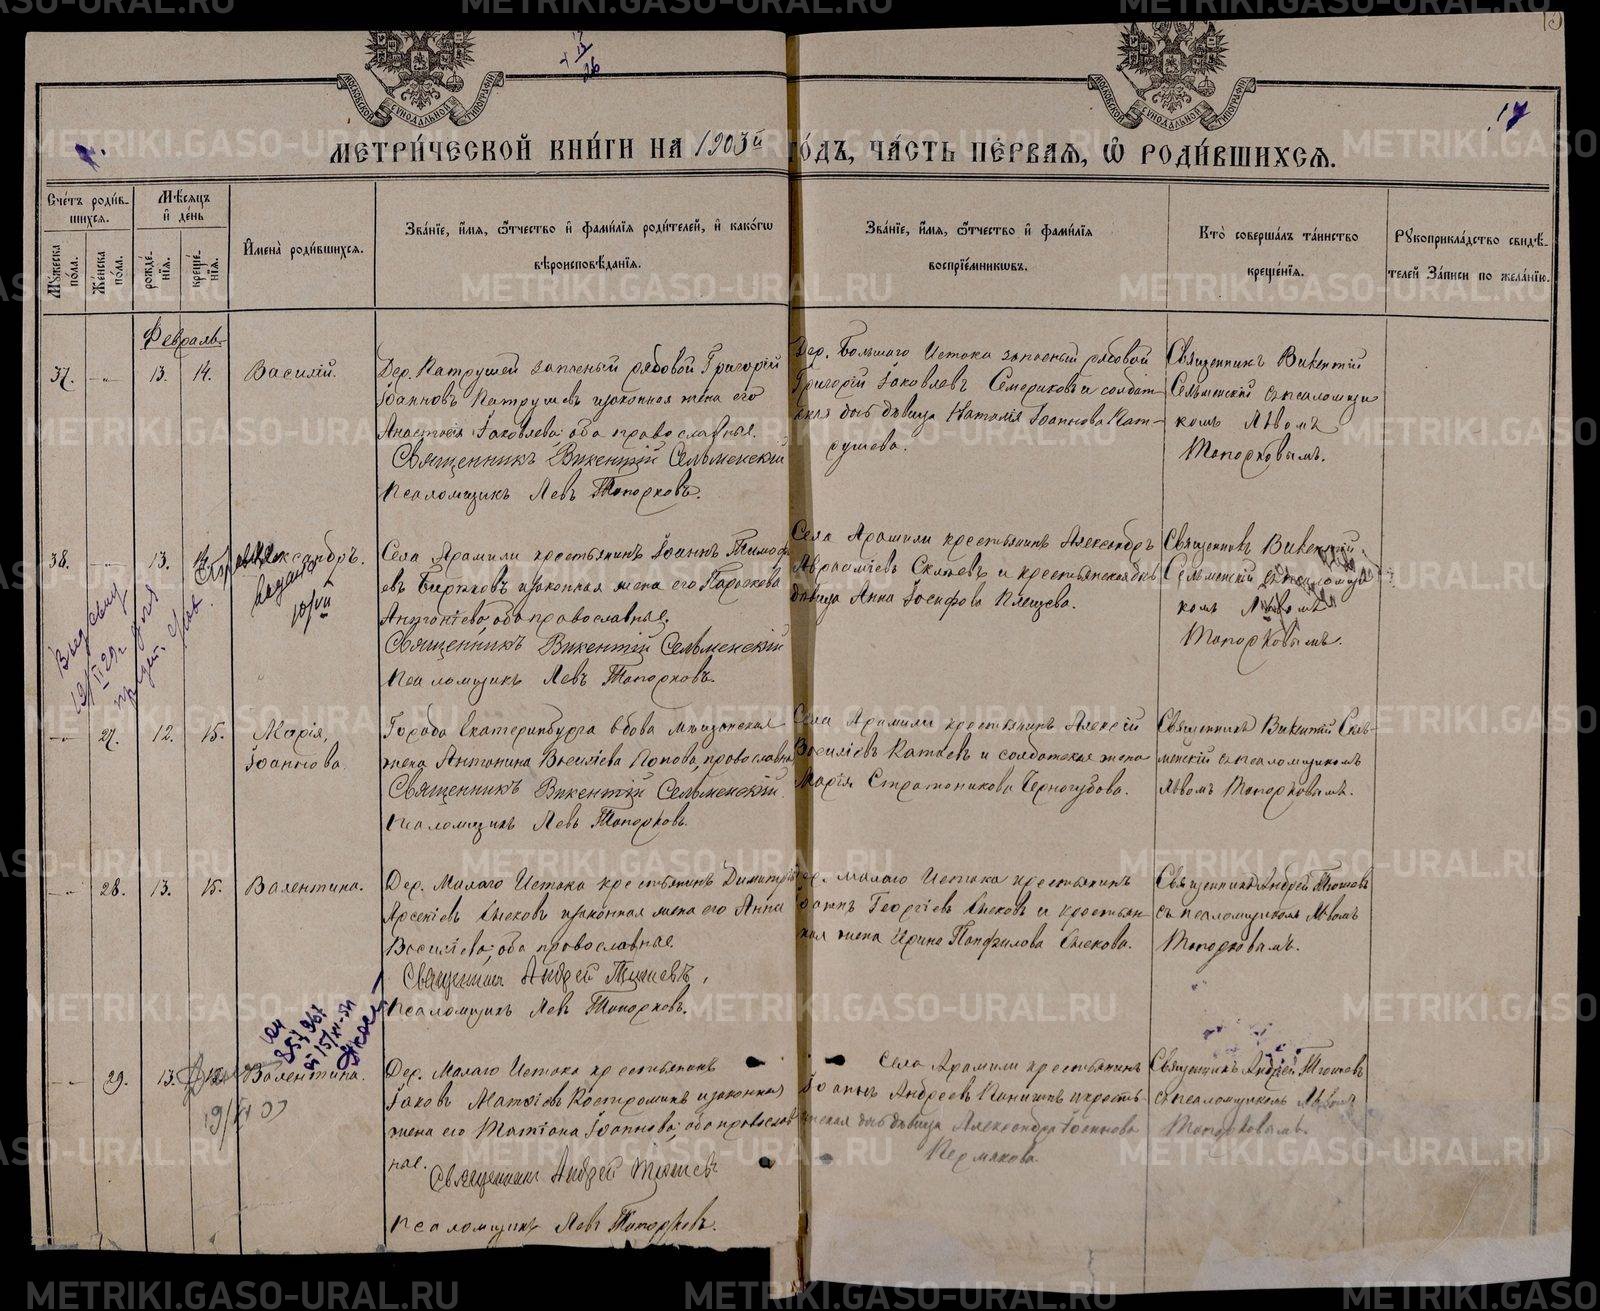 МЕТРИ́ЧЕСКОЙ КНИ́ГИ НА 1903й ГО́ДЪ, ЧА́СТЬ ПЕ́РВАЯ, Ѡ РОДИ́ВШИХСЯ.
17
Счетъ роди́вшихся.
Мѣсяцъ и день
Имена роди́вшихся.
Зва́нїе, и́мя, ѻ́тчество и фами́лїя роди́телей, и како́гѡ вѣроисповѣ́данїя.
Зва́нїе, и́мя, ѻ́тчество и фами́лїя воспрїе́мниковъ.
Кто̀ соверша́лъ та́инство креще́нїя.
Рꙋкоприкла́дство свидѣ́телей за́писи по жела́нїю.
Мꙋжеска по́ла.
Же́нска по́ла.
рожде́нїя.
креще́нїя.
Февраль
37. 13. 14. Василій.
Дер. Патрушей запасный рядовой Григорій
Іоанновъ Патрушевъ и законная жена его
Анастасія Іаковлева; оба православные.
Священникъ Викентій Сельменскій
Псаломщикъ Левъ Топорковъ.
Дер. Большаго Истока запасный рядовой
Григорій Іаковлевъ Семериковъ и солдат-
ская дочь дѣвица Наталія Іоаннова Пат-
рушева.
Священникъ Викентій
Сельменскій съ псаломщи
комъ Львомъ
Топорковымъ.
38. 13. Александръ.
Села Арамили крестьянинъ Іоаннъ Тимофе
евъ и законная жена его Параскева
Антоніева; оба православные.
Священникъ Викентій Сельменскій
Псаломщикъ Левъ Топорковъ.
Села Арамили крестьянинъ Александръ
Авраамiевъ и крестьянская дочь
дѣвица Анна Іосифова Плещева.
Священникъ Викентій
Сельменскій съ псаломщи
комъ Львомъ
Топорковымъ.
27. 12. 15. Марія,
Іоаннова.
Города Екатеринбурга вдова мѣщанская
жена Антонина Василіева Попова, православна
Священникъ Викентій Сельменскій.
Псаломщикъ Левъ Топорковъ.
Села Арамили крестьянинъ Алексій
Василіевъ Катаевъ и солдатская жена
Марія Стратоникова Черногубова.
Священникъ Викентій Сель-
менскій съ псаломщикомъ
Львомъ Топорковымъ.
28. 13. 15. Валентина.
Дер. Малаго Истока крестьянинъ Димитрій
Арсеніевъ и законная жена его Анна
Василіева; оба православные.
Священникъ Андрей
Псаломщикъ Левъ Топорковъ.
Дер. Малаго Истока крестьянинъ
Іоаннъ Георгіевъ и крестьян-
ская жена Ирина Панфилова
Священникъ Андрей
съ псаломщикомъ Львомъ
Топорковымъ.
29. 13. Валентина.
Дер. Малаго Истока крестьянинъ
Іаковъ Матѳіевъ Костроминъ и законная
жена его Татіана Іоаннова; оба православ
ные.
Священникъ Андрей
Псаломщикъ Левъ Топорковъ.
Села Арамили крестьянинъ
Іоаннъ Андреевъ и кресть-
янская дочь дѣвица Александра Іоаннова
Пермякова.
Священникъ Андрей
съ псаломщикомъ Львомъ
Топорковымъ.
METRIKI.GASO-URAL.RU